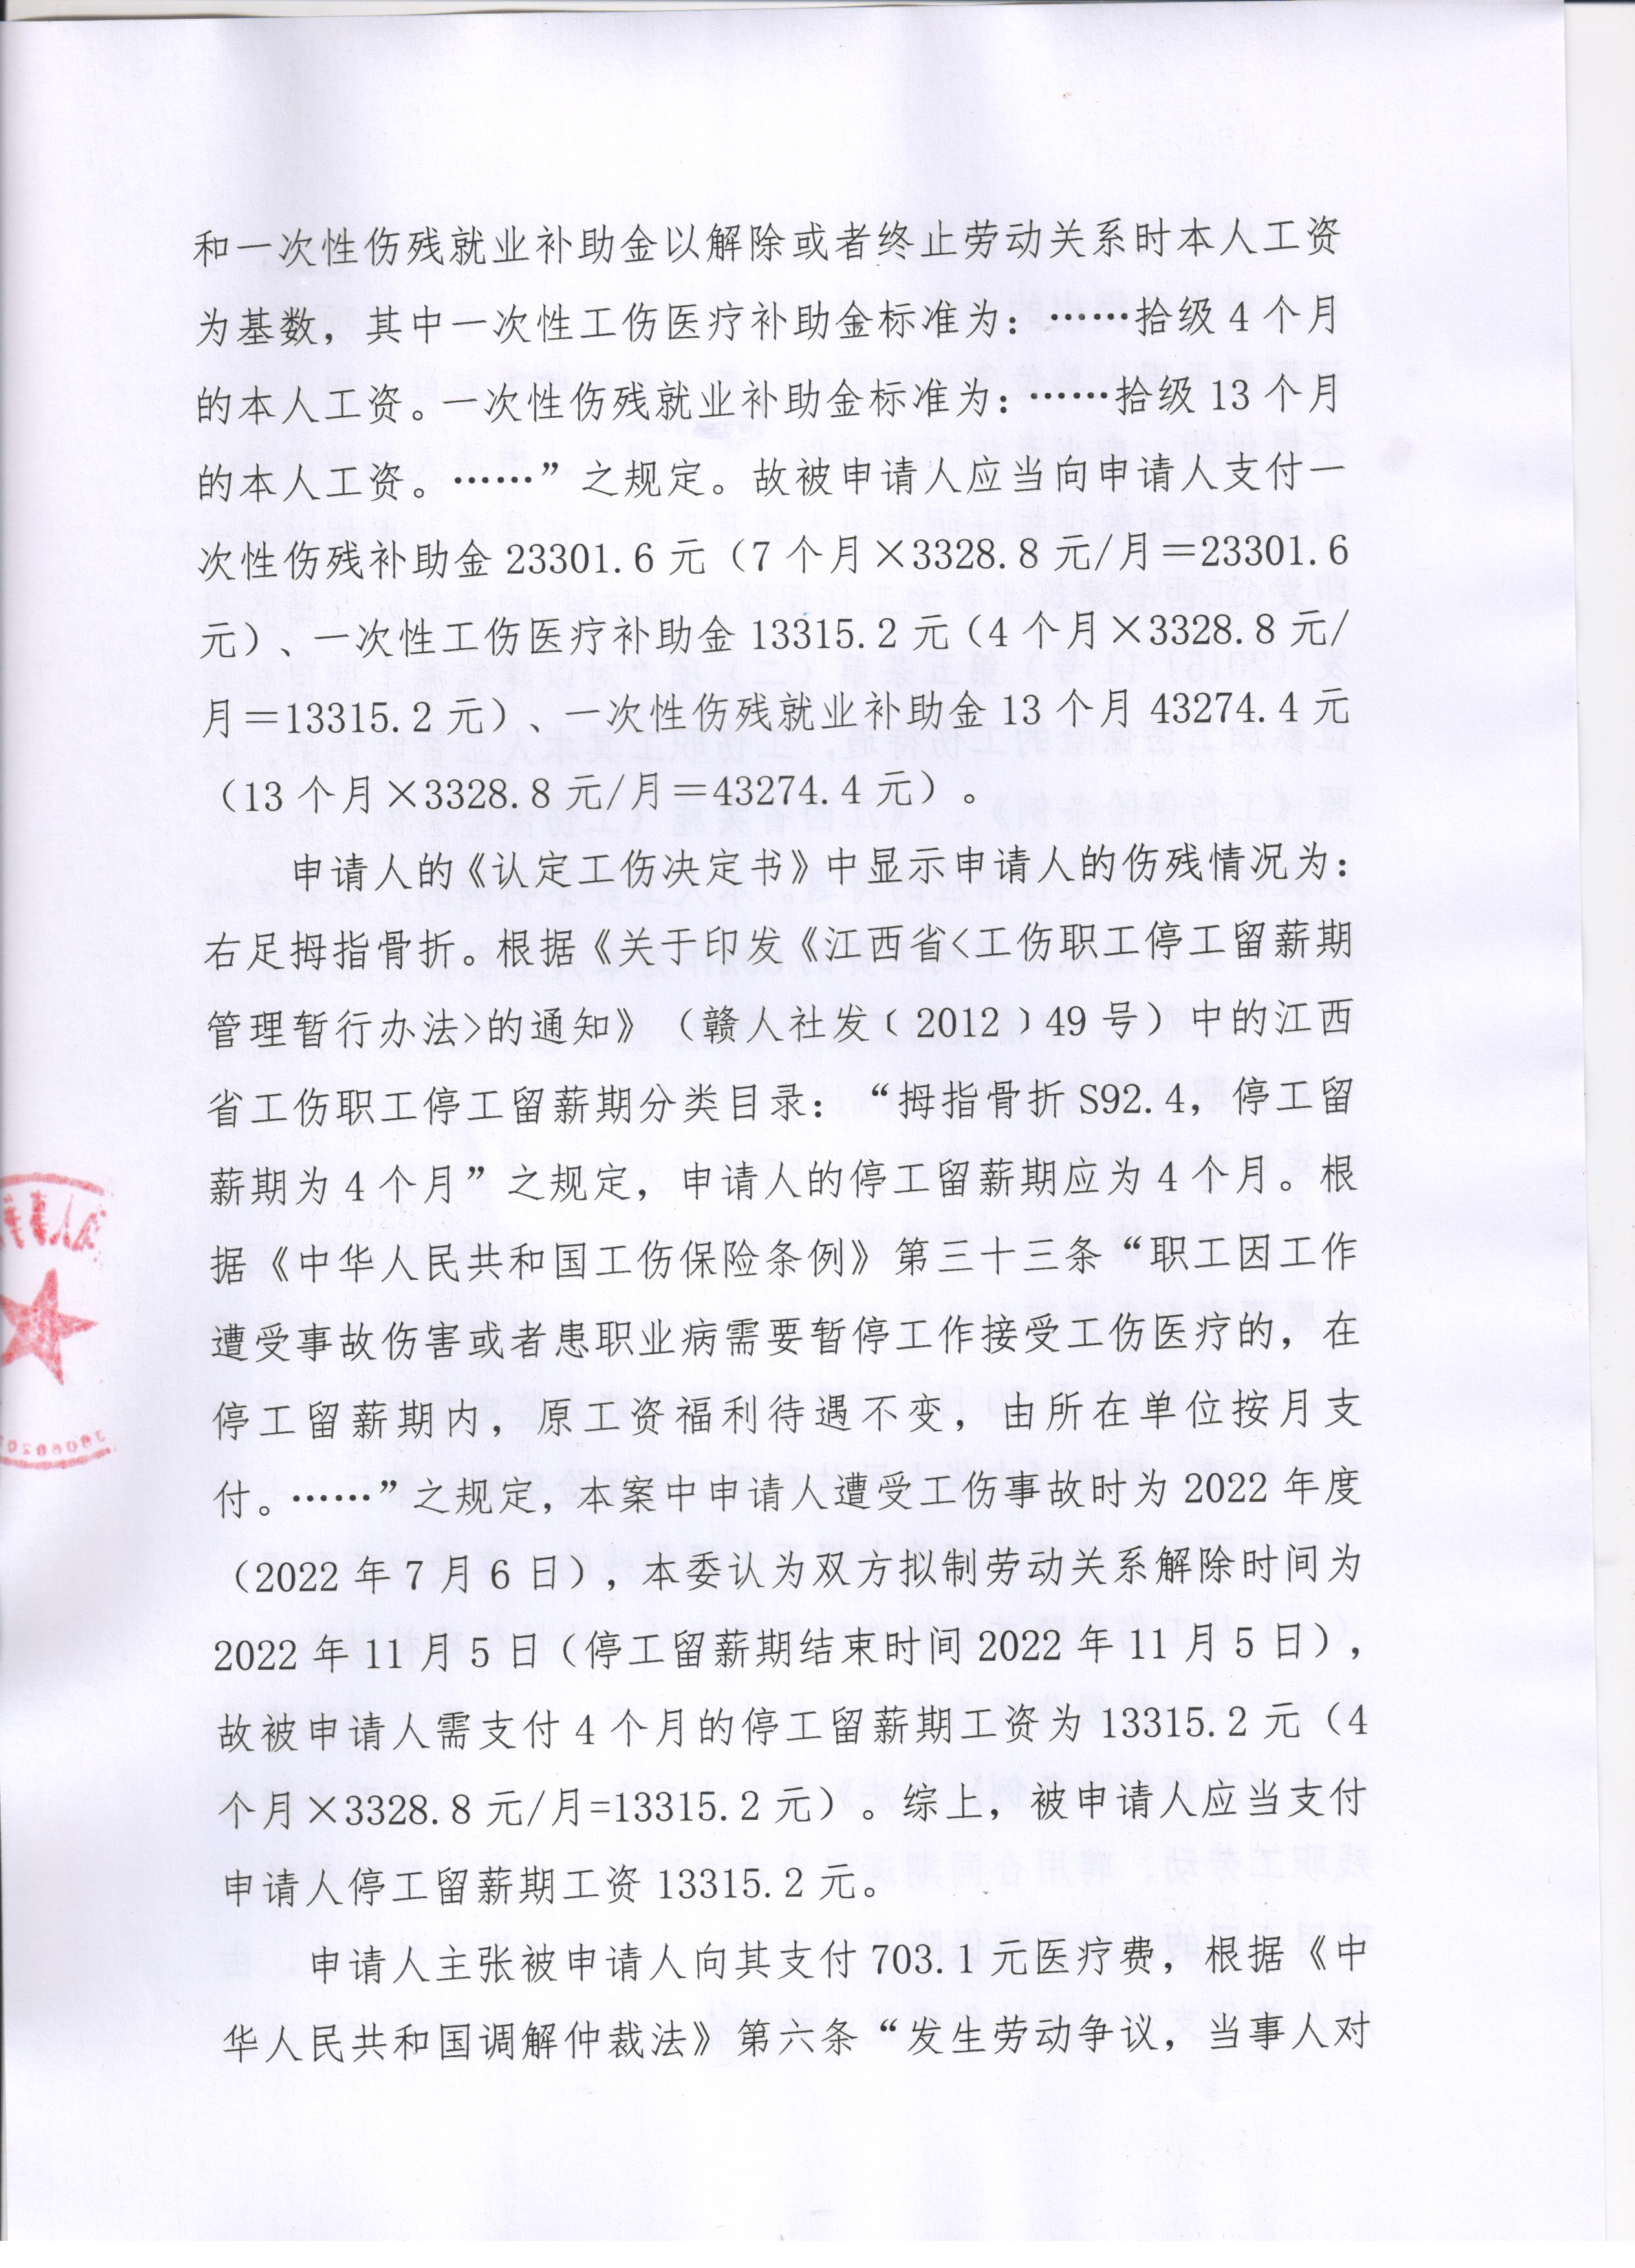 和一次性伤残就业补助金以解除或者终止劳动关系时本人工资
为基数，其中一次性工伤医疗补助金标准为：……拾级 4 个月
的本人工资。一次性伤残就业补助金标准为：……拾级 13 个月
的本人工资。……”之规定。故被申请人应当向申请人支付一
次性伤残补助金 23301.6 元（7 个月×3328.8 元/月＝23301.6
元）、一次性工伤医疗补助金 13315.2 元（4 个月×3328.8 元/
月＝13315.2 元）、一次性伤残就业补助金 13 个月 43274.4 元
（13 个月×3328.8 元/月＝43274.4 元）。
申请人的《认定工伤决定书》中显示申请人的伤残情况为：
右足拇指骨折。根据《关于印发《江西省<工伤职工停工留薪期
管理暂行办法>的通知》（赣人社发﹝2012﹞49 号）中的江西
省工伤职工停工留薪期分类目录：“拇指骨折 S92.4，停工留
薪期为 4 个月”之规定，申请人的停工留薪期应为 4 个月。根
据《中华人民共和国工伤保险条例》第三十三条“职工因工作
遭受事故伤害或者患职业病需要暂停工作接受工伤医疗的，在
停工留薪期内，原工资福利待遇不变，由所在单位按月支
付。……”之规定，本案中申请人遭受工伤事故时为 2022 年度
（2022 年 7 月 6 日），本委认为双方拟制劳动关系解除时间为
2022 年 11 月 5 日（停工留薪期结束时间 2022 年 11 月 5 日），
故被申请人需支付 4 个月的停工留薪期工资为 13315.2 元（4
个月×3328.8 元/月=13315.2 元）。综上，被申请人应当支付
申请人停工留薪期工资 13315.2 元。
申请人主张被申请人向其支付 703.1 元医疗费，根据《中
华人民共和国调解仲裁法》第六条“发生劳动争议，当事人对